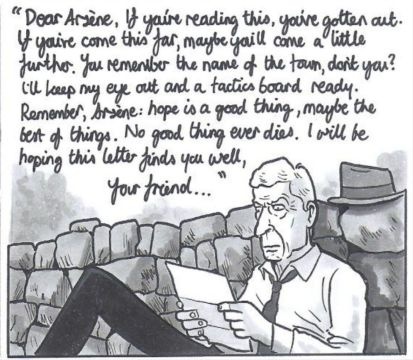 "Dear Arsène, If you're reading this, you've gotten out.
If you've come this far, maybe you'll come a little
further. You remember the name of the town, don't you?
I'll keep my eye out and a tactics board ready.
Remember, Arsène: hope is a good thing, maybe the
best of things. No good thing ever dies. I will be
hoping this letter finds you well,
Your friend..."